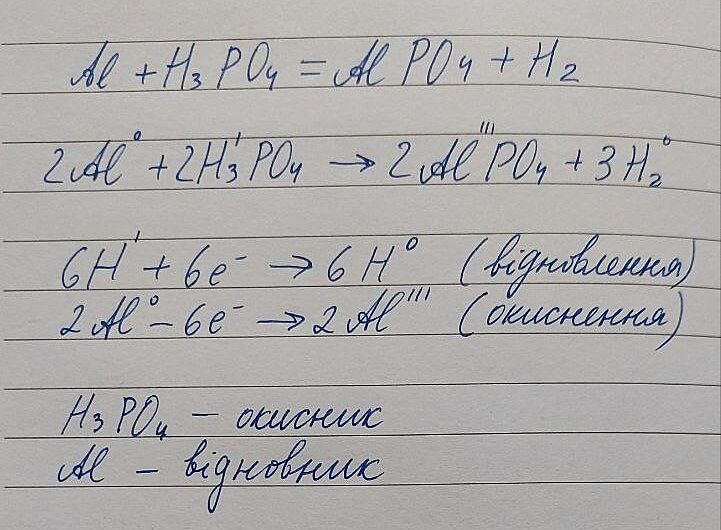 Al + H₃PO₄ = AlPO₄ + H₂
2Al⁰ + 2H₃ᴵPO₄ → 2AlᴵᴵᴵPO₄ + 3H₂⁰
6Hᴵ + 6e⁻ → 6H⁰ (відновлення)
2Al⁰ – 6e⁻ → 2Alᴵᴵᴵ (окиснення)
H₃PO₄ – окисник
Al – відновник